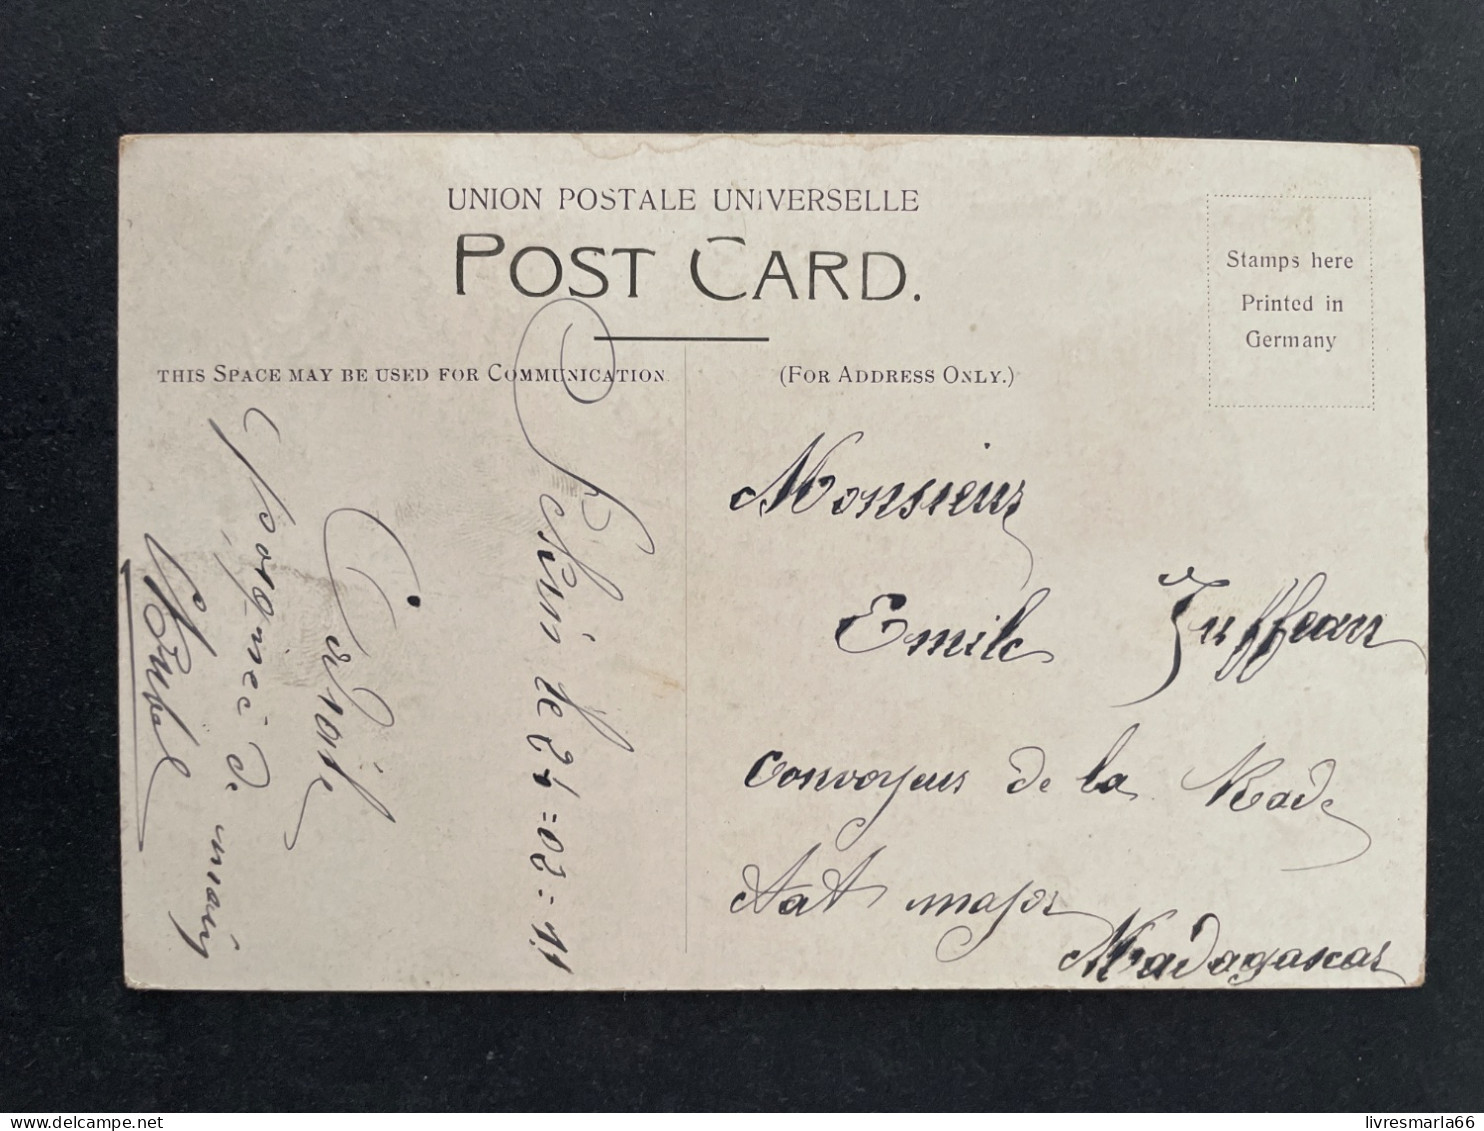 UNION POSTALE UNIVERSELLE
POST CARD.
THIS SPACE MAY BE USED FOR COMMUNICATION
(FOR ADDRESS ONLY.)
Stamps here
Printed in
Germany
Pékin le 24=02=11
Cordiale
poignée de main
Monsieur
Emile Juffeau
convoyeur de la Rade
état major
Madagascar
livresmarla66